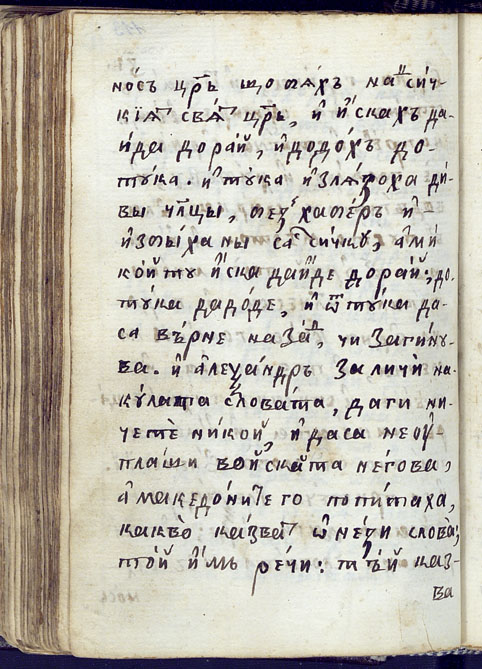 носъ цр҃ь що бѧхъ на сич-
кїѧ свѧ цр҃ь, и҆ и҆скахъ да-
и҆да до рай, и҆ додо́хъ до
тука. и҆ тука и҆злѧзоха ди-
вы чл҃цы, без хатѣръ и҆-
и҆збыха ны са сичку, а҆ми
ко́йту и҆ска да и҆де до рай; до-
тука да до́де, и҆ ѿ тука да-
са вѣрне наза́д, чи загину-
ва. и҆ а҆леѯа́ндръ заличи́ на-
кулата словата, да ги ни-
чете́ никой, и҆ да са не оу҆-
плаши войската негова,
а҆ македо́ните го попитаха,
какво̀ ка́зват ѡ҆незѝ слова̀;
той и҆мь ре́чи: тѣ́й каз-
ва